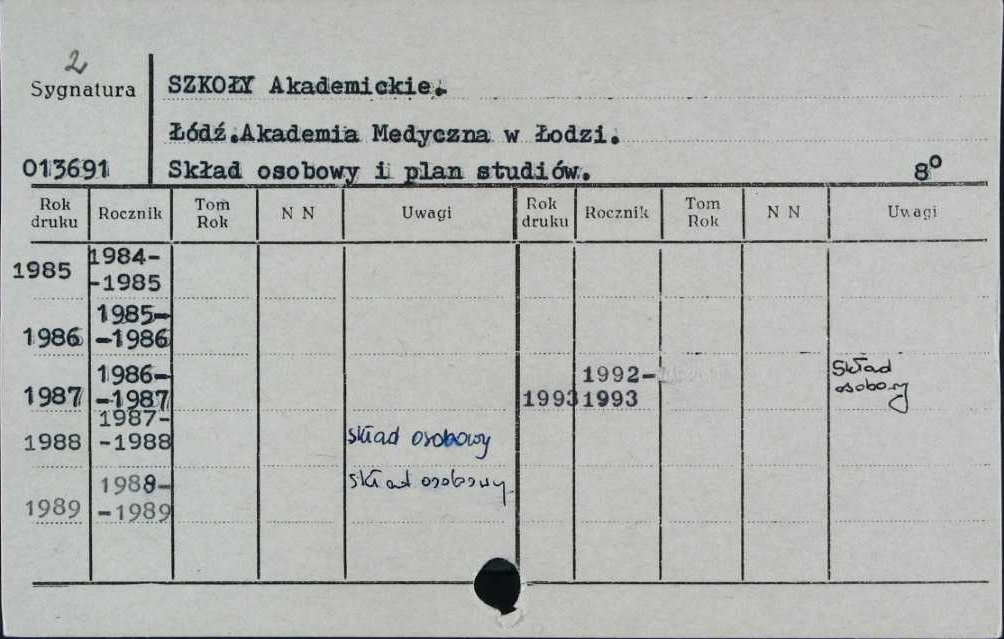 2
Sygnatura
SZKOŁY Akademickie.
Łódź.Akademia Medyczna w Łodzi.
013691
Skład osobowy i plan studiów.
8⁰
Rok druku Rocznik Tom Rok N N Uwagi Rok druku Rocznik Tom Rok N N Uwagi
1985 1984-
-1985
1986 1985-
-1986
1987 1986-
-1987
1993 1992-
1993 Skład
osobowy
1988 1987-
-1988 skład osobowy
1989 1988-
-1989 skład osobowy